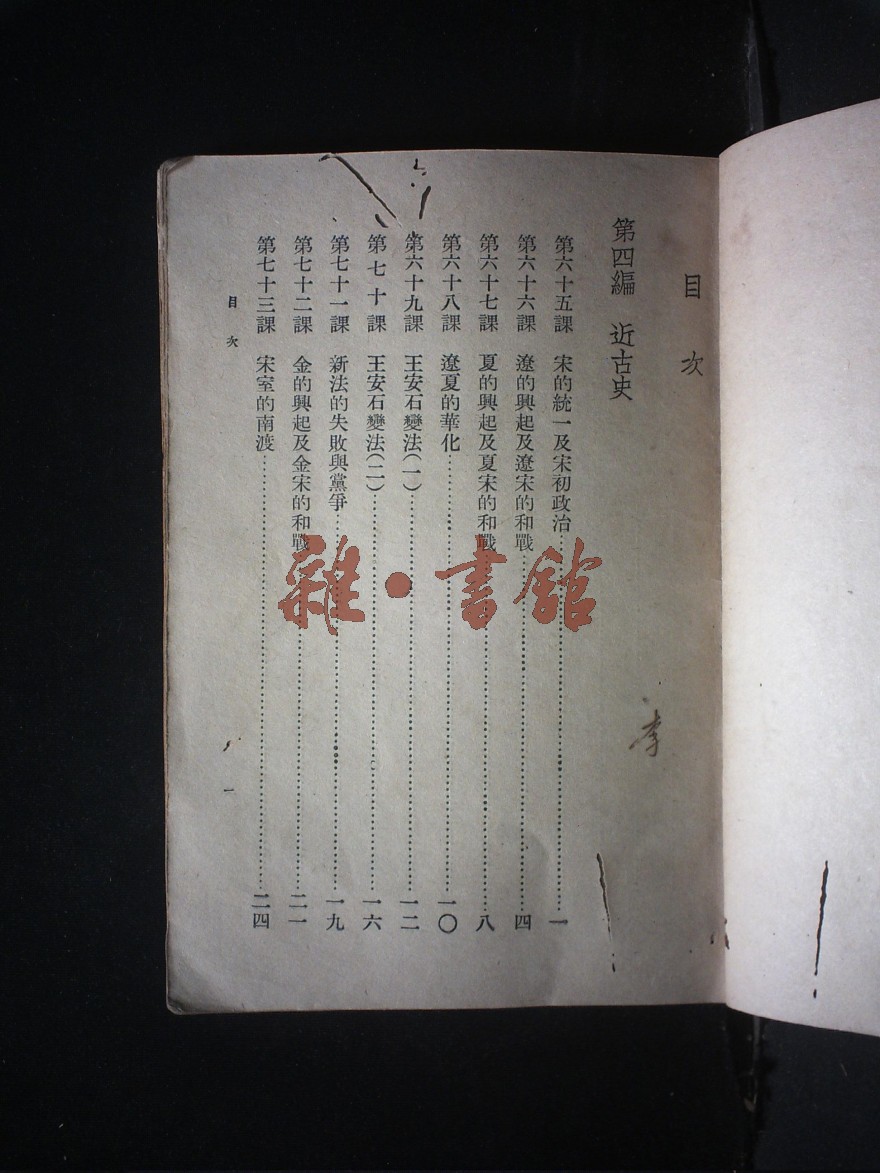 目次
第四編 近古史
第六十五課 宋的統一及宋初政治……一
第六十六課 遼的興起及遼宋的和戰……四
第六十七課 夏的興起及夏宋的和戰……八
第六十八課 遼夏的華化……一〇
第六十九課 王安石變法(一)……一二
第七十課 王安石變法(二)……一六
第七十一課 新法的失敗與黨爭……一九
第七十二課 金的興起及金宋的和戰……二一
第七十三課 宋室的南渡……二四
目次 一
雜·書館
李